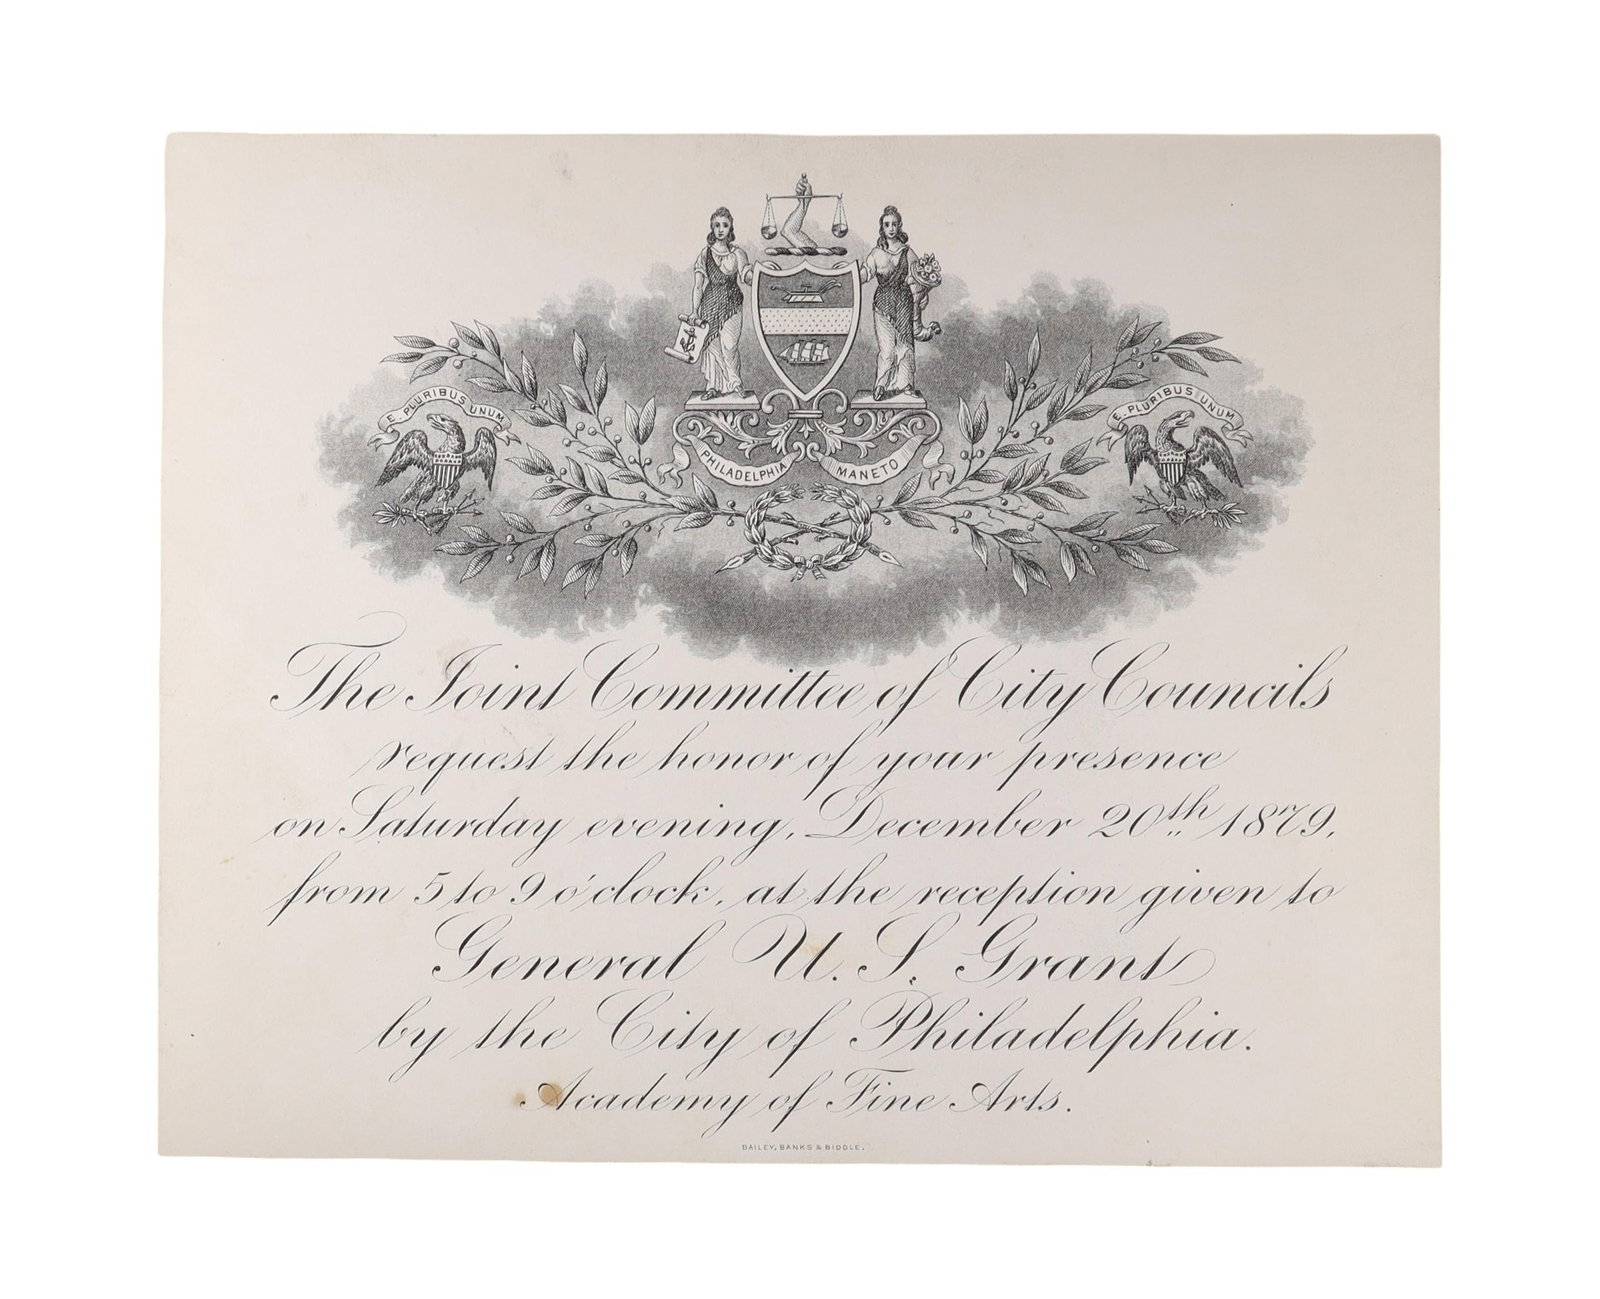 E. PLURIBUS UNUM
E. PLURIBUS UNUM
PHILADELPHIA MANETO
The Joint Committee of City Councils
request the honor of your presence
on Saturday evening, December 20th 1879,
from 5 to 9 o'clock, at the reception given to
General U. S. Grant
by the City of Philadelphia.
Academy of Fine Arts.
BAILEY, BANKS & BIDDLE.